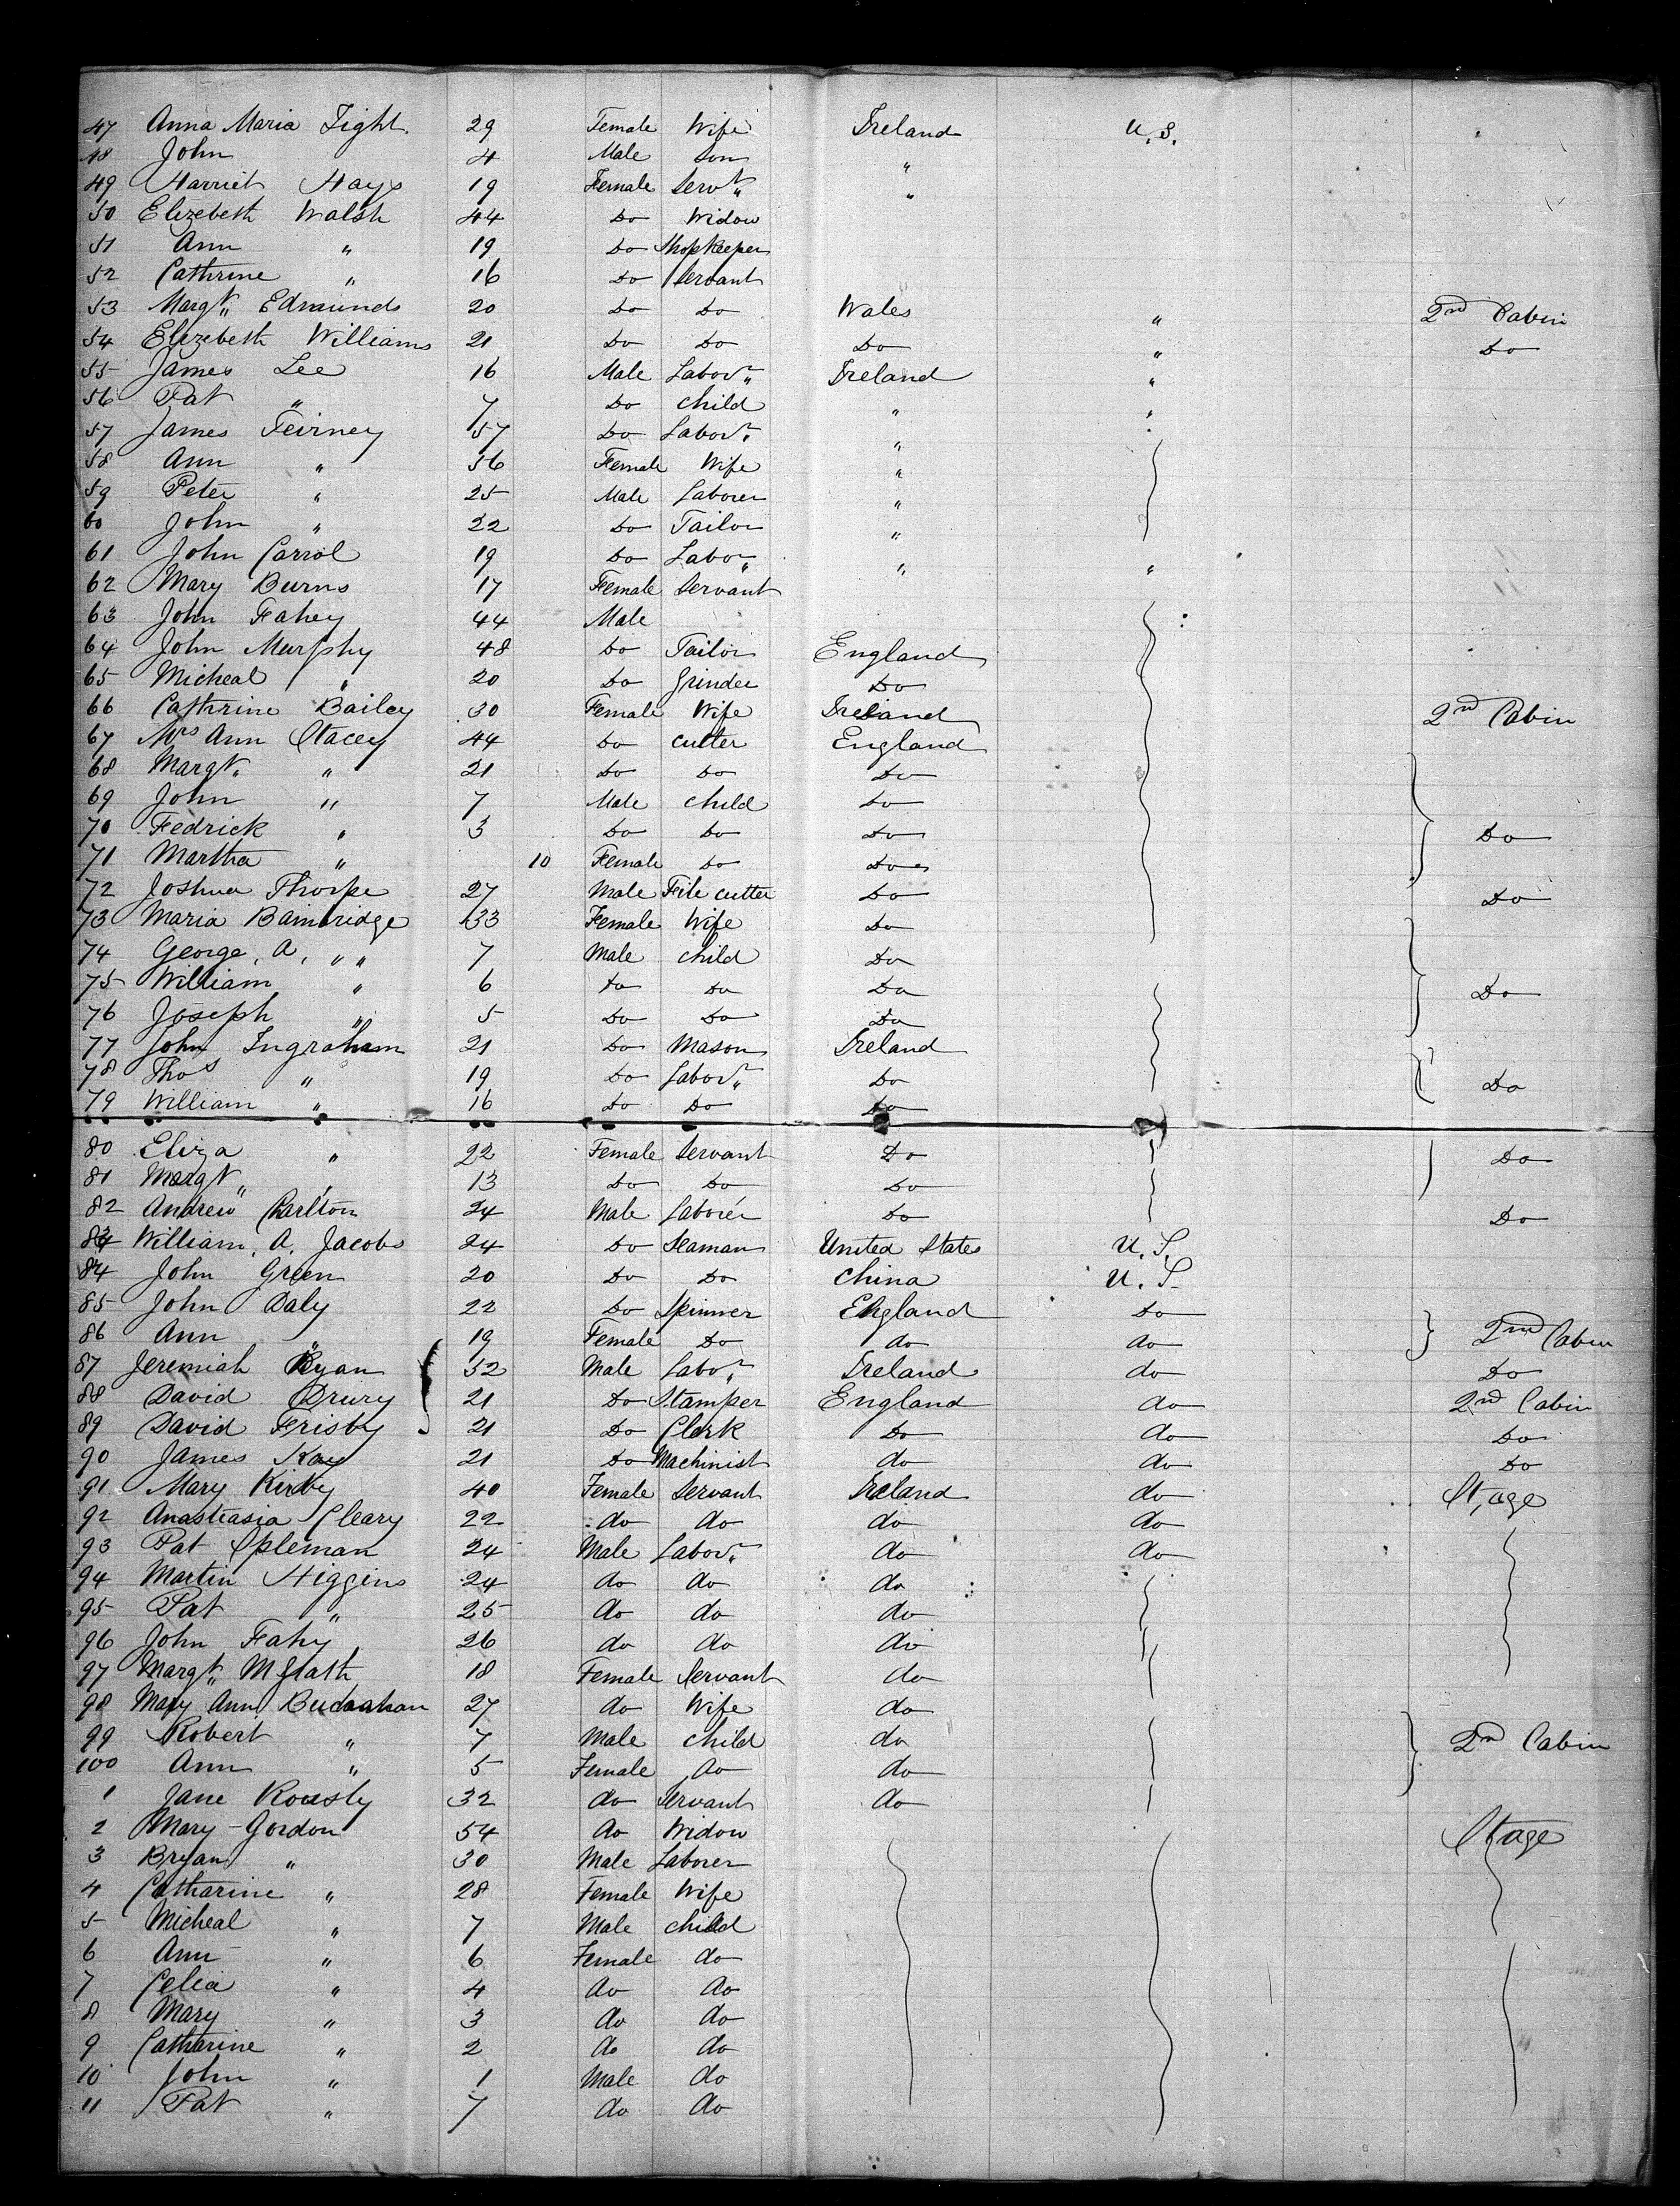 47 Anna Maria Tight 29 Female Wife Ireland U.S.
48 John 4 Male Son "
49 Harriet Hays 19 Female Servt "
50 Elizebeth Walsh 44 Do Widow
51 Ann " 19 Do Shopkeeper
52 Cathrine " 16 Do Servant
53 Margt Edmunds 20 Do Do Wales " 2nd Cabin
54 Elizebeth Williams 21 Do Do Do " Do
55 James Lee 16 Male Labor Ireland "
56 Pat " 7 Do Child " "
57 James Teirney 57 Do Labor "
58 Ann " 56 Female Wife "
59 Peter " 25 Male Laborer "
60 John " 22 Do Tailor "
61 John Carrol 19 Do Labor " "
62 Mary Burns 17 Female Servant
63 John Fahey 44 Male
64 John Murphy 48 Do Tailor England
65 Micheal " 20 Do Grinder Do
66 Cathrine Bailey 30 Female Wife Ireland 2nd Cabin
67 Mrs Ann Stacey 44 Do Cutter England
68 Margt " 21 Do Do Do
69 John " 7 Male Child Do
70 Fedrick " 3 Do Do Do Do
71 Martha " 10 Female Do Do
72 Joshua Thorpe 27 Male File cutter Do Do
73 Maria Bambridge 33 Female Wife Do
74 George, A, " " 7 Male Child Do
75 William " 6 Do Do Do Do
76 Joseph " 5 Do Do Do
77 John Ingraham 21 Do Mason Ireland
78 Thos " 19 Do Labor Do Do
79 William " 16 Do Do Do
80 Eliza " 22 Female Servant Do Do
81 Margt " 13 Do Do Do
82 Andrew Carlton 24 Male Laborer Do Do
83 William, A, Jacobs 24 Do Seaman United States U.S.
84 John Green 20 Do Do China U.S.
85 John Daly 22 Do Spinner England Do
86 Ann " 19 Female Do do do 2nd Cabin
87 Jeremiah Ryan 52 Male Labor Ireland do Do
88 David Drury 21 Do Stamper England do 2nd Cabin
89 David Frisby 21 Do Clerk Do do Do
90 James Kay 21 Do Machinist do do Do
91 Mary Kirby 40 Female Servant Ireland do St,age
92 Anastasia Cleary 22 do do do do
93 Pat Spleman 24 Male Labor do do
94 Martin Higgins 24 do do do
95 Pat " 25 do do do
96 John Fahy 26 do do do
97 Margt McGrath 18 Female Servant do
98 Mary Ann 27 do Wife do
99 Robert " 7 Male Child do 2nd Cabin
100 Ann " 5 Female do do
1 Jane 32 do Servant do
2 Mary Gordon 54 do Widow St,age
3 Bryan " 30 Male Laborer
4 Catharine " 28 Female Wife
5 Micheal " 7 Male Child
6 Ann " 6 Female do
7 Celia " 4 do do
8 Mary " 3 do do
9 Catharine " 2 do do
10 John " 1 Male do
11 Pat " 7 do do